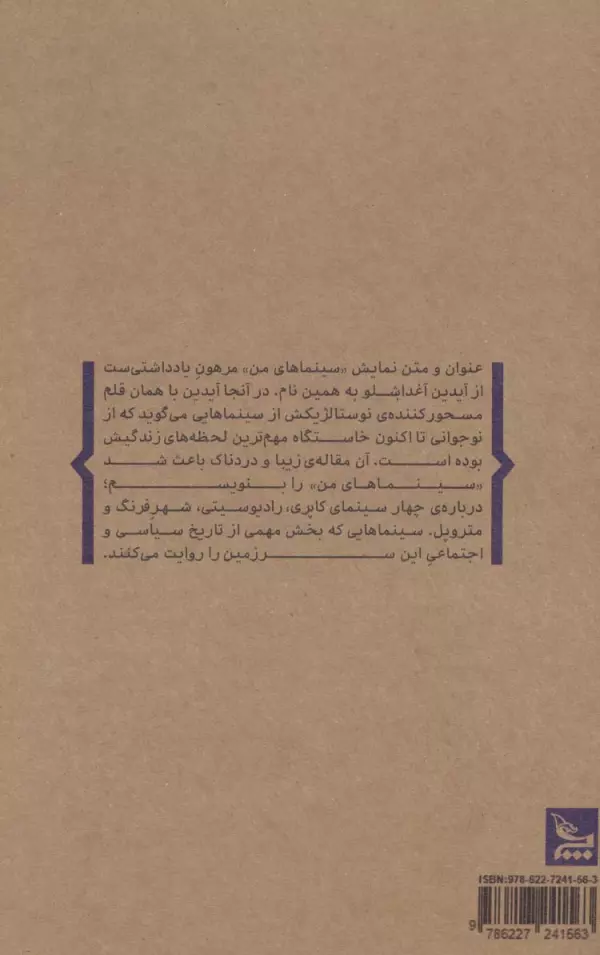 عنوان و متن نمایش «سینماهای من» مرهون یادداشتی‌ست
از آیدین آغداشلو به همین نام. در آنجا آیدین با همان قلم
مسحورکننده‌ی نوستالژیکش از سینماهایی می‌گوید که از
نوجوانی تا اکنون خاستگاه مهم‌ترین لحظه‌های زندگیش
بوده است. آن مقاله‌ی زیبا و دردناک باعث شد
«سینماهای من» را بنویسم؛
درباره‌ی چهار سینمای کاپری، رادیوسیتی، شهرفرنگ و
متروپل. سینماهایی که بخش مهمی از تاریخ سیاسی و
اجتماعیِ این سرزمین را روایت می‌کنند.
ISBN:978-622-7241-56-3
9 786227 241563